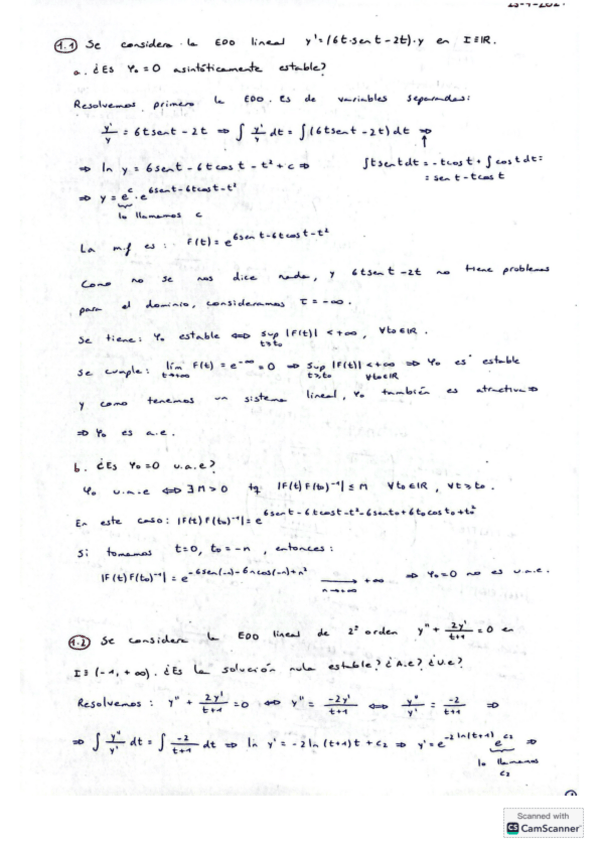 1.1 Se considera la EDO lineal y'=(6t·sent-2t)·y en I≡IR.
a. ¿Es Y₀=0 asintóticamente estable?
Resolvemos primero la EDO. Es de variables separadas:
y'/y = 6tsent-2t ⇒ ∫ y'/y dt = ∫(6tsent-2t)dt ⇒
⇒ ln y = 6sent-6tcost-t²+c ⇒ ∫tsentdt=-tcost+∫costdt=
= sent-tcost
⇒ y=e^c·e^(6sent-6tcost-t²)
lo llamamos c
La m.f es: F(t)=e^(6sent-6tcost-t²)
Como no se nos dice nada, y 6tsent-2t no tiene problemas
para el dominio, consideramos τ=-∞.
Se tiene: Y₀ estable ⇔ sup t≥t₀ |F(t)|<+∞, ∀t₀∈IR.
Se cumple: lim t→+∞ F(t)=e^(-∞)=0 ⇒ sup t≥t₀ |F(t)|<+∞ ∀t₀∈IR ⇒ Y₀ es estable
y como tenemos un sistema lineal, Y₀ también es atractiva ⇒
⇒ Y₀ es a.e.
b. ¿Es Y₀=0 u.a.e?
Y₀ u.a.e ⇔ ∃M>0 tq |F(t)F(t₀)⁻¹|≤M ∀t₀∈IR, ∀t≥t₀.
En este caso: |F(t)F(t₀)⁻¹|=e^(6sent-6tcost-t²-6sent₀+6t₀cost₀+t₀²)
Si tomamos t=0, t₀=-n, entonces:
|F(t)F(t₀)⁻¹|=e^(-6sen(-n)-6ncos(-n)+n²) → n→+∞ +∞ ⇒ Y₀=0 no es u.a.e.
1.2 Se considera la EDO lineal de 2º orden y''+ 2y'/(t+1) =0 en
I≡(-1,+∞). ¿Es la solución nula estable? ¿A.e? ¿U.e?
Resolvemos: y''+ 2y'/(t+1) =0 ⇔ y''= -2y'/(t+1) ⇔ y''/y' = -2/(t+1) ⇒
⇒ ∫ y''/y' dt = ∫ -2/(t+1) dt ⇒ ln y'=-2ln(t+1)t+c₂ ⇒ y'=e^(-2ln(t+1)) e^(c₂) ⇒
lo llamamos
c₂
Scanned with
CS CamScanner